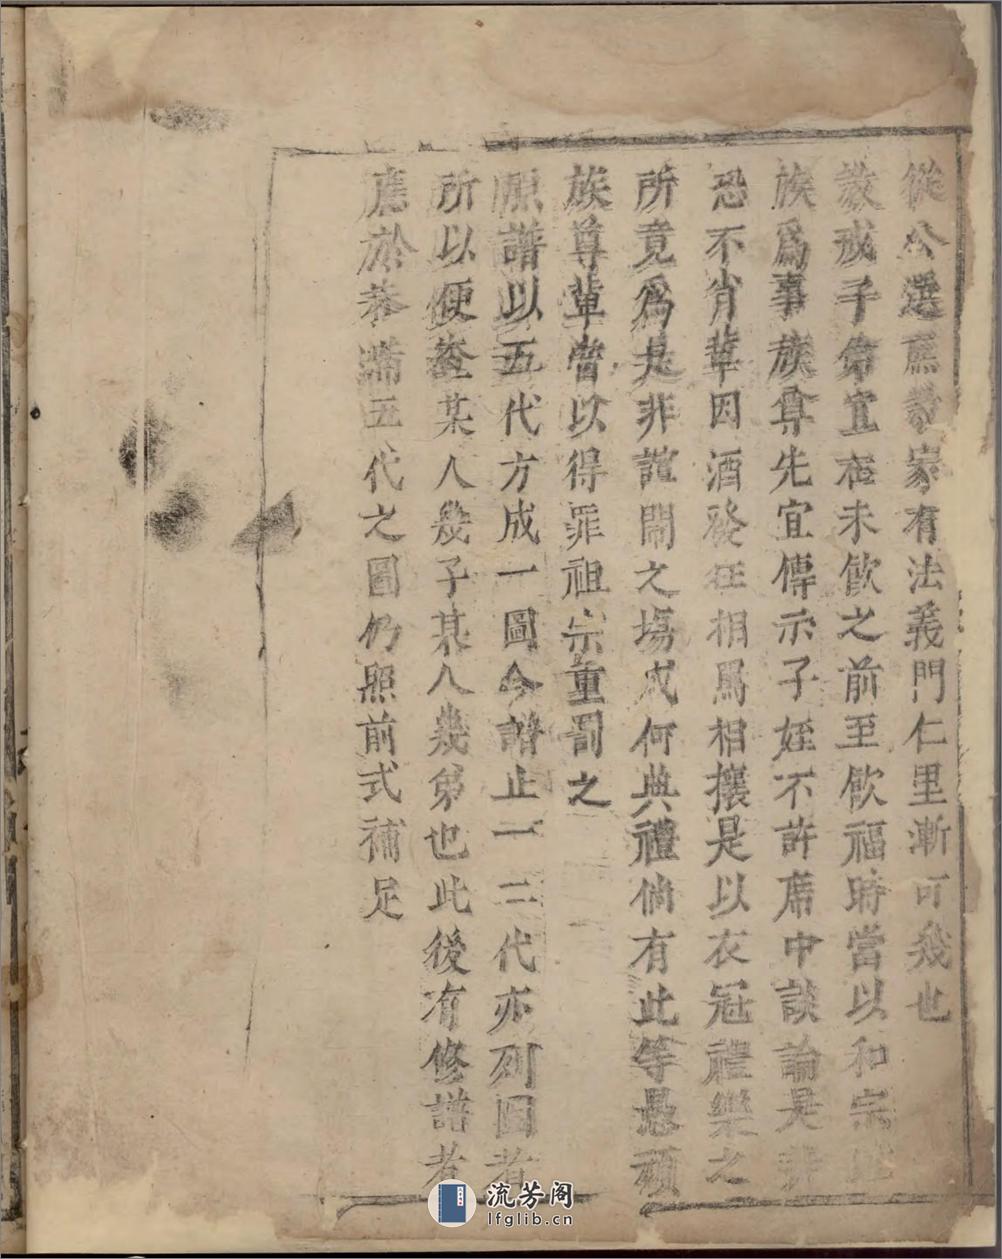 從公選焉蓋家有法義門仁里漸可幾也
教戒子弟宜在未飲之前至飲福時當以和宗
族爲事族尊先宜傳示子姪不許席中談論是非
恐不肖輩因酒發狂相罵相攘是以衣冠禮樂之
所竟爲是非諠鬧之塲成何典禮倘有此等愚頑
族尊輩當以得罪祖宗重罰之
照譜以五代方成一圖今譜止一二代亦列圖者
所以便查某人幾子某人幾弟也此後有修譜者
應於卷滿五代之圖仍照前式補足
流芳阁
lfglib.cn